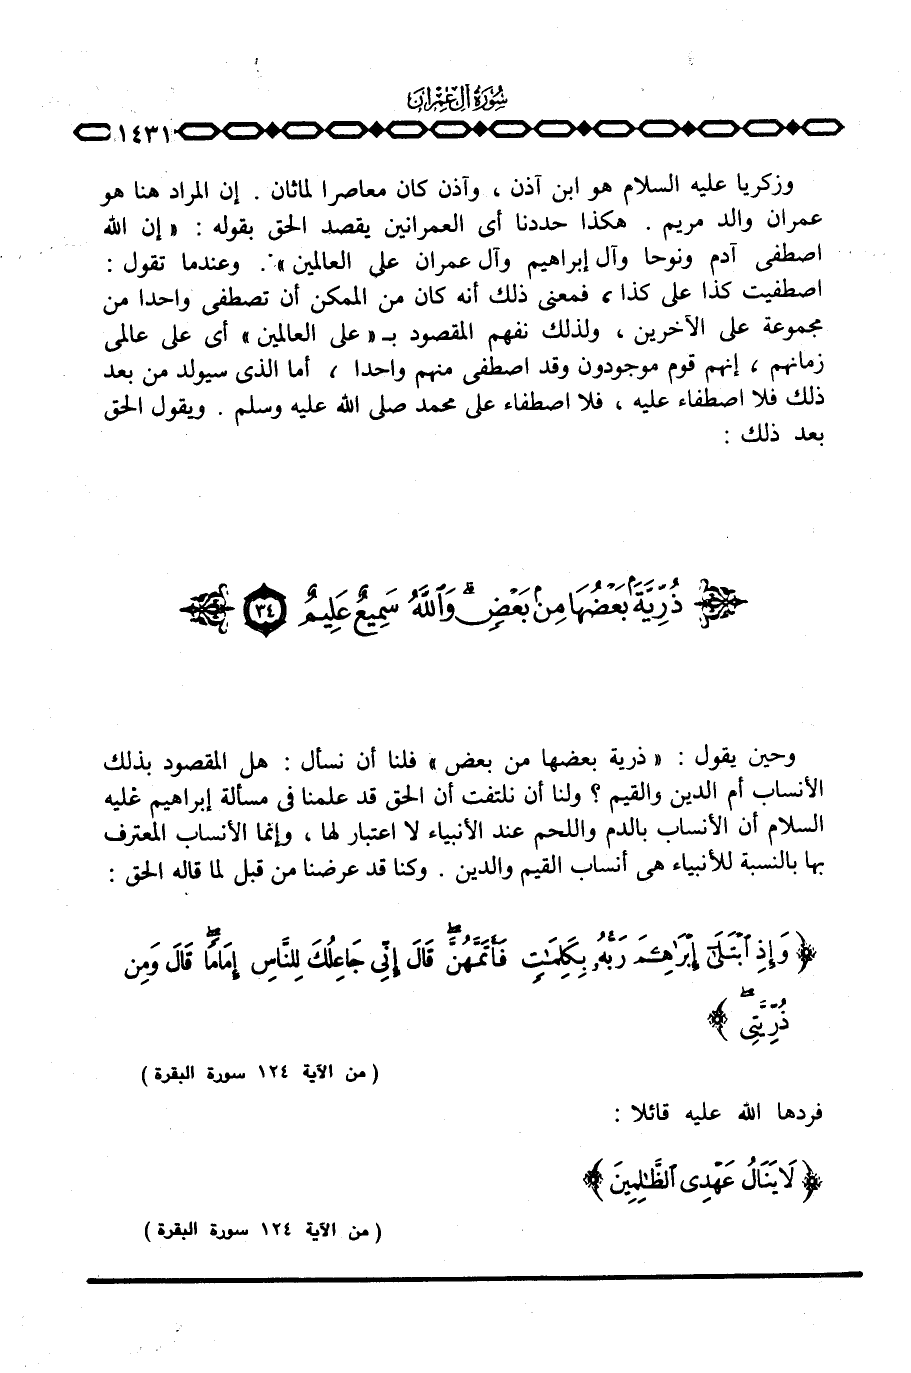 سُورَةُ آلِ عِمْرَانَ
١٤٣١
وزكريا عليه السلام هو ابن آذن ، وآذن كان معاصرا لماثان . إن المراد هنا هو
عمران والد مريم . هكذا حددنا أى العمرانين يقصد الحق بقوله : « إن الله
اصطفى آدم ونوحا وآل إبراهيم وآل عمران على العالمين » . وعندما تقول :
اصطفيت كذا على كذا ، فمعنى ذلك أنه كان من الممكن أن تصطفى واحدا من
مجموعة على الآخرين ، ولذلك نفهم المقصود بـ « على العالمين » أى على عالمى
زمانهم ، إنهم قوم موجودون وقد اصطفى منهم واحدا ، أما الذى سيولد من بعد
ذلك فلا اصطفاء عليه ، فلا اصطفاء على محمد صلى الله عليه وسلم . ويقول الحق
بعد ذلك :
ذُرِّيَّةً بَعْضُهَا مِنْ بَعْضٍ ۗ وَٱللَّهُ سَمِيعٌ عَلِيمٌ ٣٤
وحين يقول : « ذرية بعضها من بعض » فلنا أن نسأل : هل المقصود بذلك
الأنساب أم الدين والقيم ؟ ولنا أن نلتفت أن الحق قد علمنا فى مسألة إبراهيم عليه
السلام أن الأنساب بالدم واللحم عند الأنبياء لا اعتبار لها ، وإنما الأنساب المعترف
بها بالنسبة للأنبياء هى أنساب القيم والدين . وكنا قد عرضنا من قبل لما قاله الحق :
﴿ وَإِذِ ٱبْتَلَىٰٓ إِبْرَٰهِـۧمَ رَبُّهُۥ بِكَلِمَٰتٍ فَأَتَمَّهُنَّ ۖ قَالَ إِنِّى جَاعِلُكَ لِلنَّاسِ إِمَامًا ۖ قَالَ وَمِن
ذُرِّيَّتِى ۖ ﴾
( من الآية ١٢٤ سورة البقرة )
فردها الله عليه قائلا :
﴿ لَا يَنَالُ عَهْدِى ٱلظَّٰلِمِينَ ﴾
( من الآية ١٢٤ سورة البقرة )